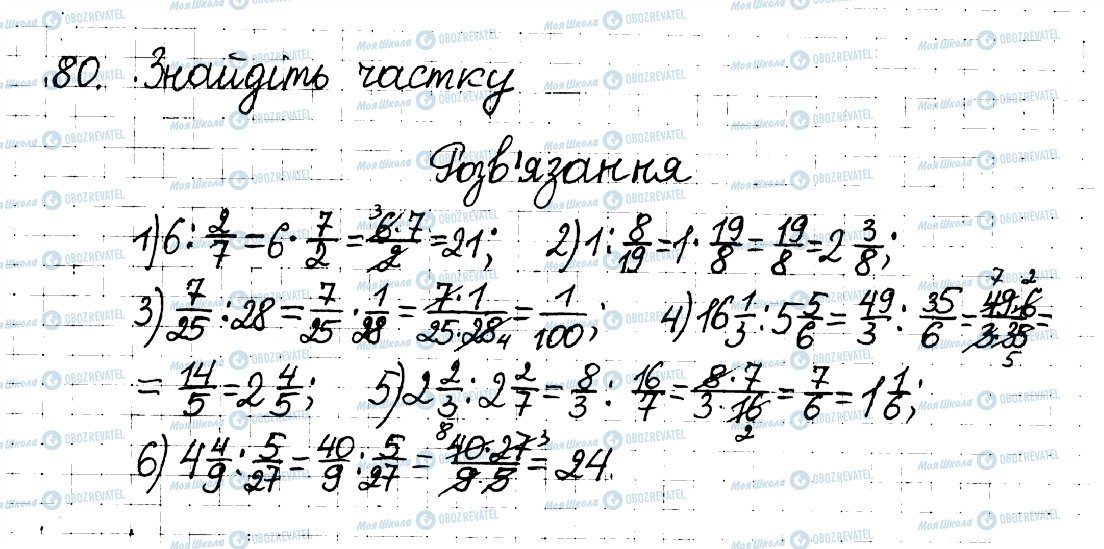 80. Знайдіть частку
Розв'язання
1) 6 : 2/7 = 6 · 7/2 = 6·7/2 = 21; 2) 1 : 8/19 = 1 · 19/8 = 19/8 = 2 3/8;
3) 7/25 : 28 = 7/25 · 1/28 = 7·1/25·28 = 1/100; 4) 16 1/3 : 5 5/6 = 49/3 : 35/6 = 49·6/3·35 =
= 14/5 = 2 4/5; 5) 2 2/3 : 2 2/7 = 8/3 : 16/7 = 8·7/3·16 = 7/6 = 1 1/6;
6) 4 4/9 : 5/27 = 40/9 : 5/27 = 40·27/9·5 = 24.